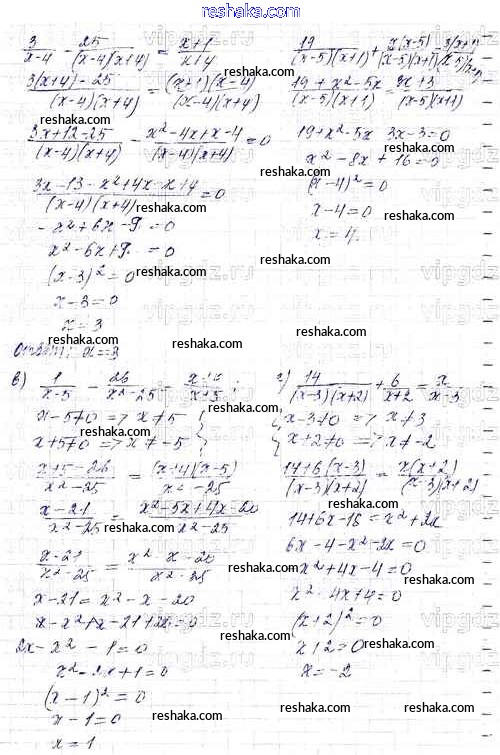 reshaka.com
3/(x-4) - 25/((x-4)(x+4)) = (x+1)/(x+4)
(3(x+4)-25)/((x-4)(x+4)) = ((x+1)(x-4))/((x-4)(x+4))
(3x+12-25)/((x-4)(x+4)) - (x²-4x+x-4)/((x-4)(x+4)) = 0
(3x-13-x²+4x-x+4)/((x-4)(x+4)) = 0
-x²+6x-9=0
x²-6x+9=0
(x-3)²=0
x-3=0
x=3
Ответ: x=3
19/((x-5)(x+1)) + x(x-5)/((x-5)(x+1))
(19+x²-5x)/((x-5)(x+1)) = /((x-5)(x+1))
19+x²-5x 3x-3=0
x²-8x+16=0
(x-4)²=0
x-4=0
x=4
в) 1/(x-5) - 26/(x²-25) = /(x+5);
x-5≠0 => x≠5
x+5≠0 => x≠-5
(x+5-26)/(x²-25) = ((x+4)(x-5))/(x²-25)
(x-21)/(x²-25) = (x²-5x+4x-20)/(x²-25)
(x-21)/(x²-25) = (x²-x-20)/(x²-25)
x-21=x²-x-20
2x-x²-1=0
x²-2x+1=0
(x-1)²=0
x-1=0
x=1
г) 14/((x-3)(x+2)) + 6/(x+2) = x/(x-3)
x-3≠0 => x≠3
x+2≠0 => x≠-2
(14+6(x-3))/((x-3)(x+2)) = x(x+2)/((x-3)(x+2))
14+6x-18=x²+2x
6x-4-x²-2x=0
-x²+4x-4=0
x²-4x+4=0
(x+2)²=0
x+2=0
x=-2
reshaka.com